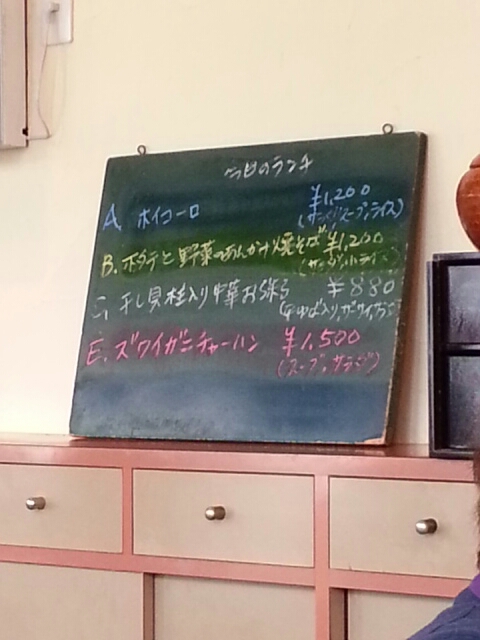 今日のランチ
A. ホイコーロ ¥1,200
(サラダ、スープ、ライス)
B. ホタテと野菜のあんかけ焼そば ¥1,200
(サラダ、小ライス)
干し貝柱入り中華お粥 ¥880
E. ズワイガニチャーハン ¥1,500
(スープ、サラダ)